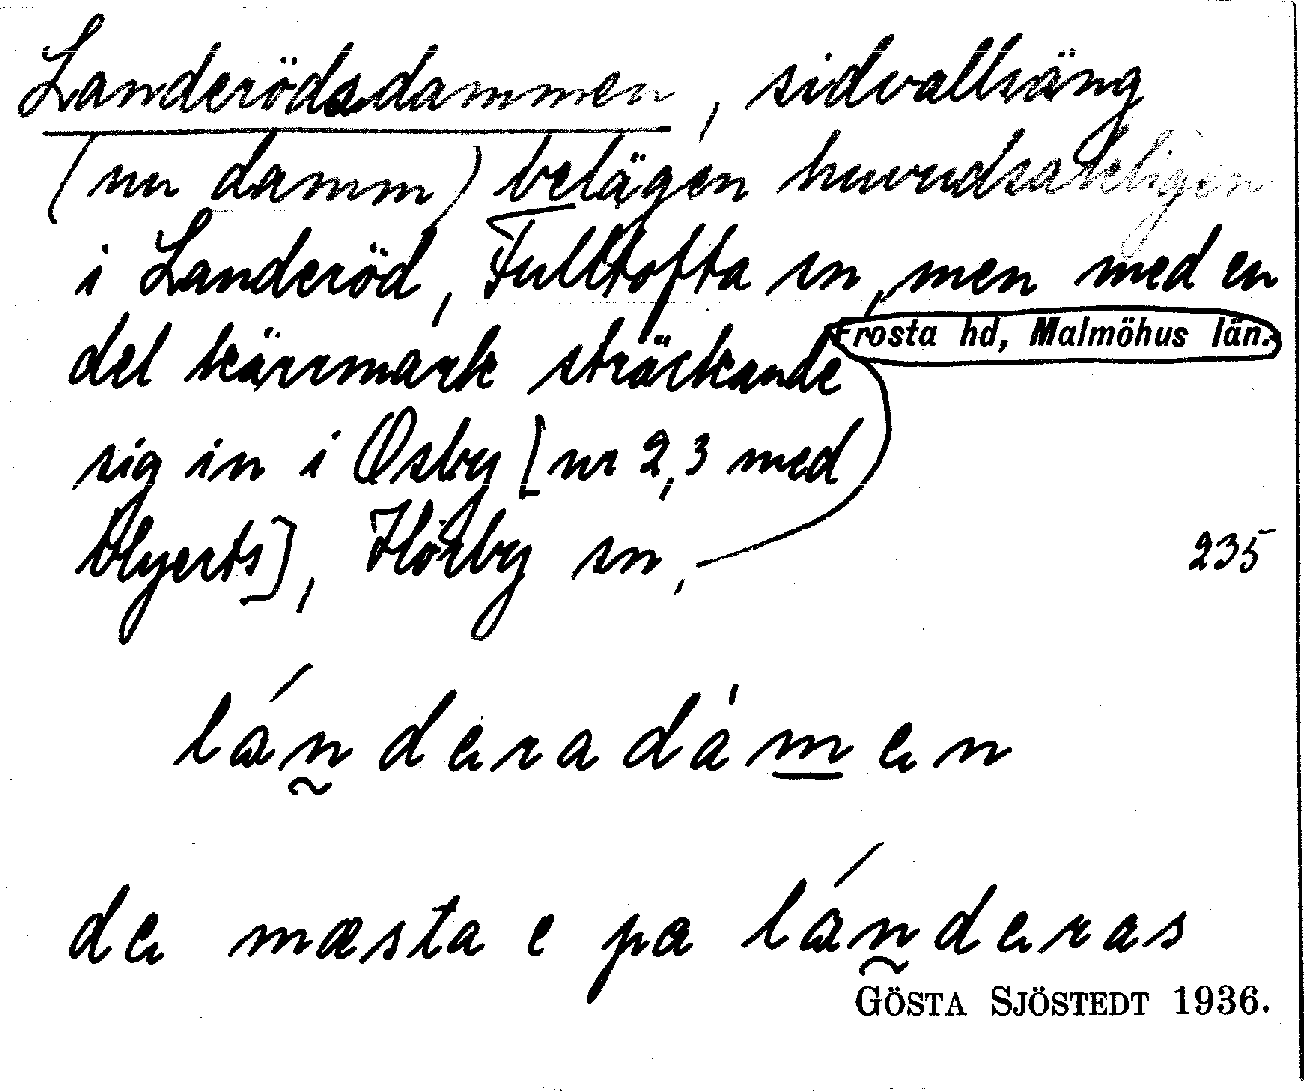 Landerödsdammen, sidvallsäng
(nu damm) belägen huvudsakligen
i Landeröd, Fulltofta sn, men med en
del kärrmark sträckande
Frosta hd, Malmöhus län.
sig in i Osby [nr 2,3 med
Olyerts], Hörby sn,
235
länderadåmen
de mæsta e pa länderas
GÖSTA SJÖSTEDT 1936.